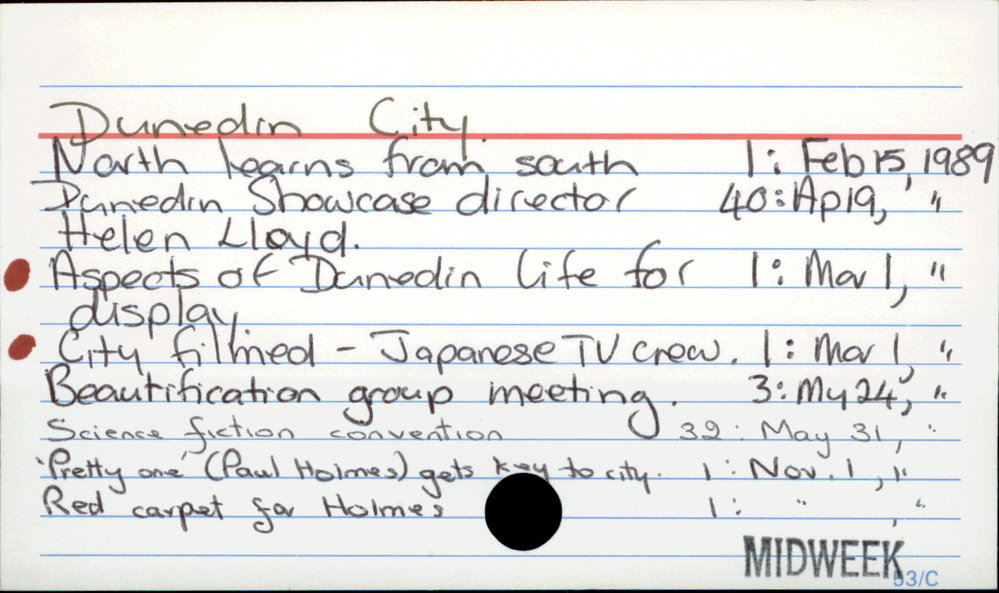 Dunedin City.
North learns from south 1: Feb 15, 1989
Dunedin Showcase director 40: Ap 19, "
Helen Lloyd.
Aspects of Dunedin life for 1: Mar 1, "
display
City filmed - Japanese TV crew. 1: Mar 1, "
Beautification group meeting. 3: My 24, "
Science fiction convention 32: May 31, "
'Pretty one' (Paul Holmes) gets key to city. 1: Nov. 1, "
Red carpet for Holmes 1: " , "
MIDWEEK
53/C